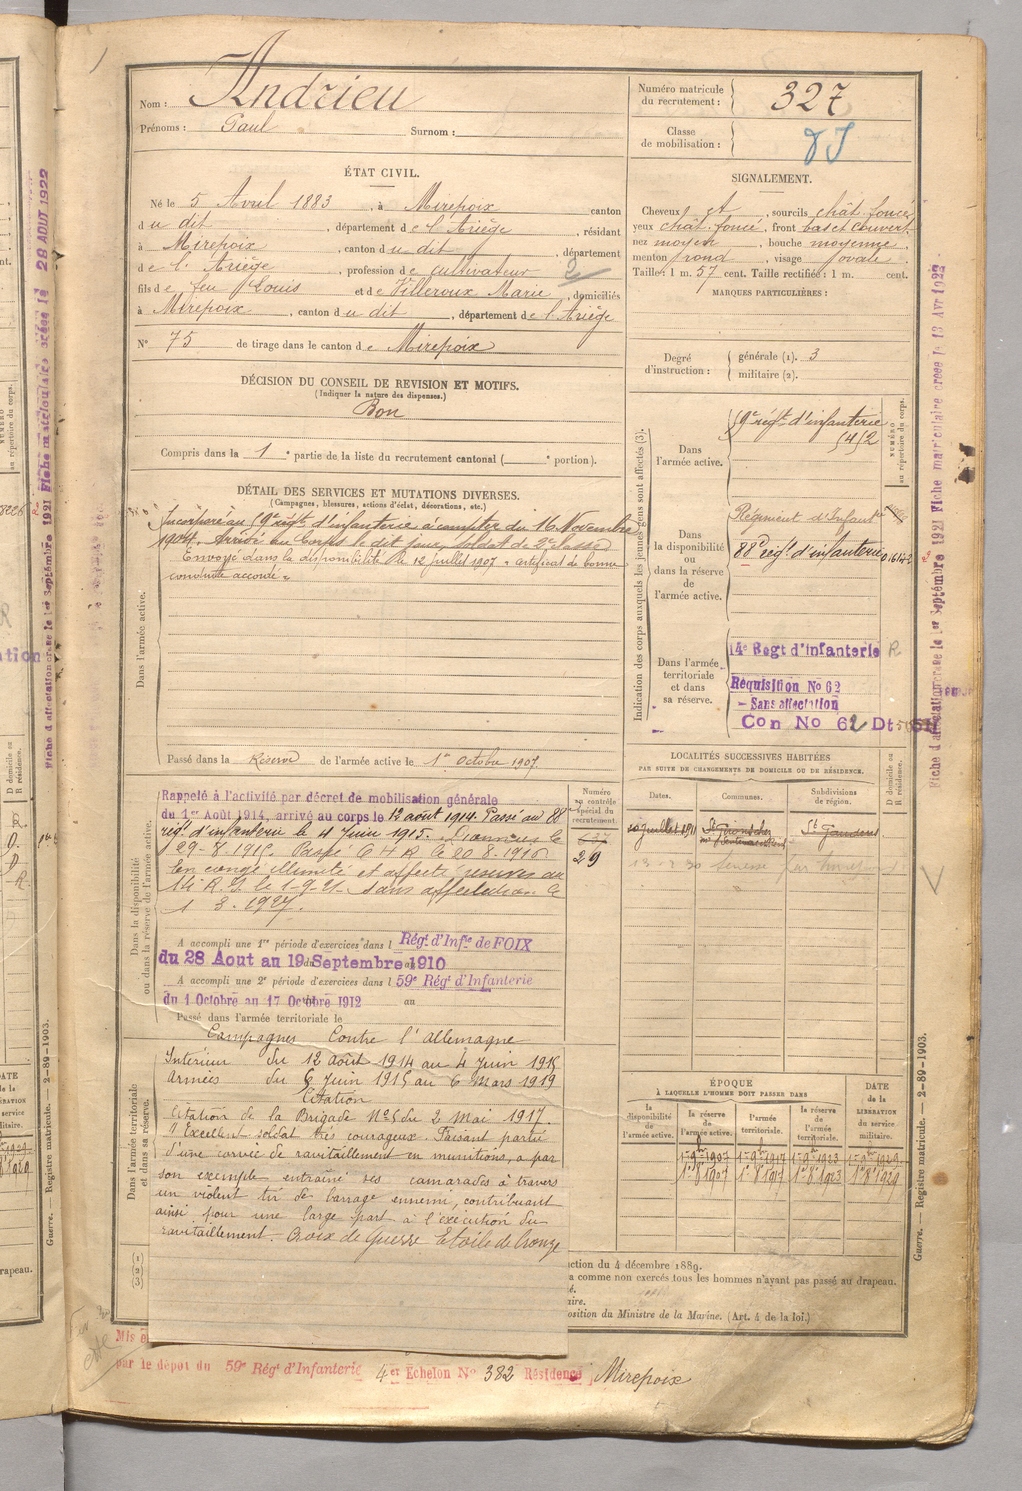 Nom : Andrieu
Prénoms : Paul Surnom :
Numéro matricule du recrutement : 327
Classe de mobilisation :
ÉTAT CIVIL.
Né le 5 Avril 1883, à Mirepoix canton
du dit, département de l'Ariège, résidant
à Mirepoix, canton du dit, département
de l'Ariège, profession de cultivateur 2
fils de feu Louis et de Villeroux Marie, domiciliés
à Mirepoix, canton du dit, département de l'Ariège
N° 75 de tirage dans le canton de Mirepoix
SIGNALEMENT.
Cheveux et, sourcils chât. foncé
yeux chât. foncé, front bas et couvert
nez moyen, bouche moyenne,
menton rond, visage ovale.
Taille : 1 m. 57 cent. Taille rectifiée : 1 m. cent.
MARQUES PARTICULIÈRES :
Degré d'instruction : générale (1). 3
militaire (2).
DÉCISION DU CONSEIL DE REVISION ET MOTIFS.
(Indiquer la nature des dispenses.)
Bon
Compris dans la 1e partie de la liste du recrutement cantonal ( e portion).
DÉTAIL DES SERVICES ET MUTATIONS DIVERSES.
(Campagnes, blessures, actions d'éclat, décorations, etc.)
Dans l'armée active.
Incorporé au 59e régt d'infanterie à compter du 16 Novembre
1904. Arrivé au Corps le dit jour, soldat de 2e classe
Envoyé dans la disponibilité le 12 juillet 1907 « certificat de bonne
conduite accordé »
Passé dans la Réserve de l'armée active le 1er Octobre 1907.
Indication des corps auxquels les jeunes gens sont affectés (3).
NUMÉRO au répertoire du corps.
Dans l'armée active.
59e régt d'infanterie
5412
Dans la disponibilité ou dans la réserve de l'armée active.
Régiment d'Infant
88e régt d'infanterie
Dans l'armée territoriale et dans sa réserve.
14e Regt d'infanterie R
Requisition No 62
- Sans affectation
Con No 62 Dt
Dans la disponibilité ou dans la réserve de l'armée active.
Rappelé à l'activité par décret de mobilisation générale
du 1er Août 1914, arrivé au corps le 12 août 1914. Passé au 88
régt d'infanterie le 4 Juin 1915.
En congé illimité et affecté réserves du
14 R.I. le 1-9-21. sans affectation le
1 3. 1927.
Numéro au contrôle spécial du recrutement.
29
A accompli une 1re période d'exercices dans l Régt d'Infie de FOIX
du 28 Aout au 19 Septembre 1910
A accompli une 2e période d'exercices dans l 59e Régt d'Infanterie
du 1 Octobre au 17 Octobre 1912 au
Passé dans l'armée territoriale le
LOCALITÉS SUCCESSIVES HABITÉES
PAR SUITE DE CHANGEMENTS DE DOMICILE OU DE RÉSIDENCE.
Dates. Communes. Subdivisions de région. D domicile ou R résidence.
St Gaudens
Dans l'armée territoriale et dans sa réserve.
Campagnes Contre l'allemagne
Intérieur du 12 août 1914 au 4 Juin 1915
Armées du 5 Juin 1915 au 6 Mars 1919
Citation
Citation de la Brigade N°5 du 2 Mai 1917.
"Excellent soldat très courageux. Faisant partie
d'une corvée de ravitaillement en munitions, a par
son exemple entraîné ses camarades à travers
un violent tir de barrage ennemi, contribuant
ainsi pour une large part à l'exécution du
ravitaillement. Croix de Guerre Etoile de bronze
ÉPOQUE
À LAQUELLE L'HOMME DOIT PASSER DANS
la disponibilité de l'armée active. la réserve de l'armée active. l'armée territoriale. la réserve de l'armée territoriale.
DATE de la LIBÉRATION du service militaire.
1er 9bre 1907 1er 9bre 1917 1er 9bre 1923 1er 9bre 1929
1er 8bre 1907 1er 8bre 1917 1er 8bre 1923 1er 8bre 1929
(1)
(2)
(3)
ction du 4 décembre 1889.
a comme non exercés tous les hommes n'ayant pas passé au drapeau.
é.
aire.
osition du Ministre de la Marine. (Art. 4 de la loi.)
Mis e
par le dépot du 59e Régt d'Infanterie 4er Échelon No 382 Résidence Mirepoix
Guerre. — Registre matricule. — 2-89-1903.
Fiche d'affectation créée le 1er Septembre 1921 Fiche matriculaire créée le 13 Avr 1922
Fiche d'affectation créée le 1er Septembre 1921 Fiche matriculaire créée le 28 AOUT 1922
Guerre. — Registre matricule. — 2-89-1903.